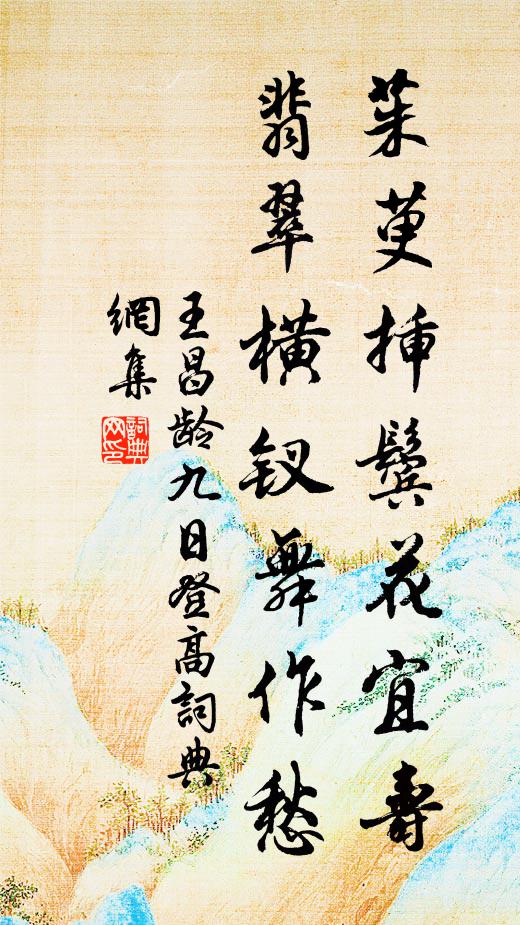 茱萸插鬓花宜壽
翡翠橫釵舞作愁
王昌龄九日登高詞典
網集
詞典
网印